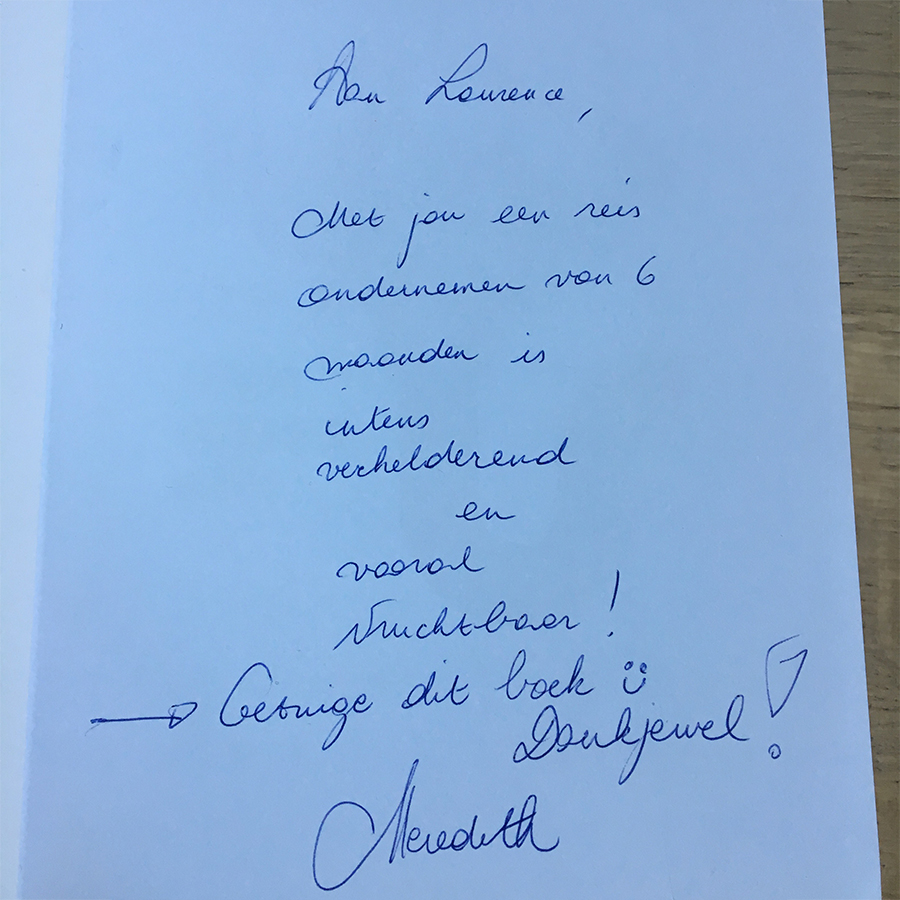 Aan Laurence,
Met jou een reis
ondernemen van 6
maanden is
intens
verhelderend
en
vooral
vruchtbaar!
→ Getuige dit boek :)
Dankjewel!
Meredith